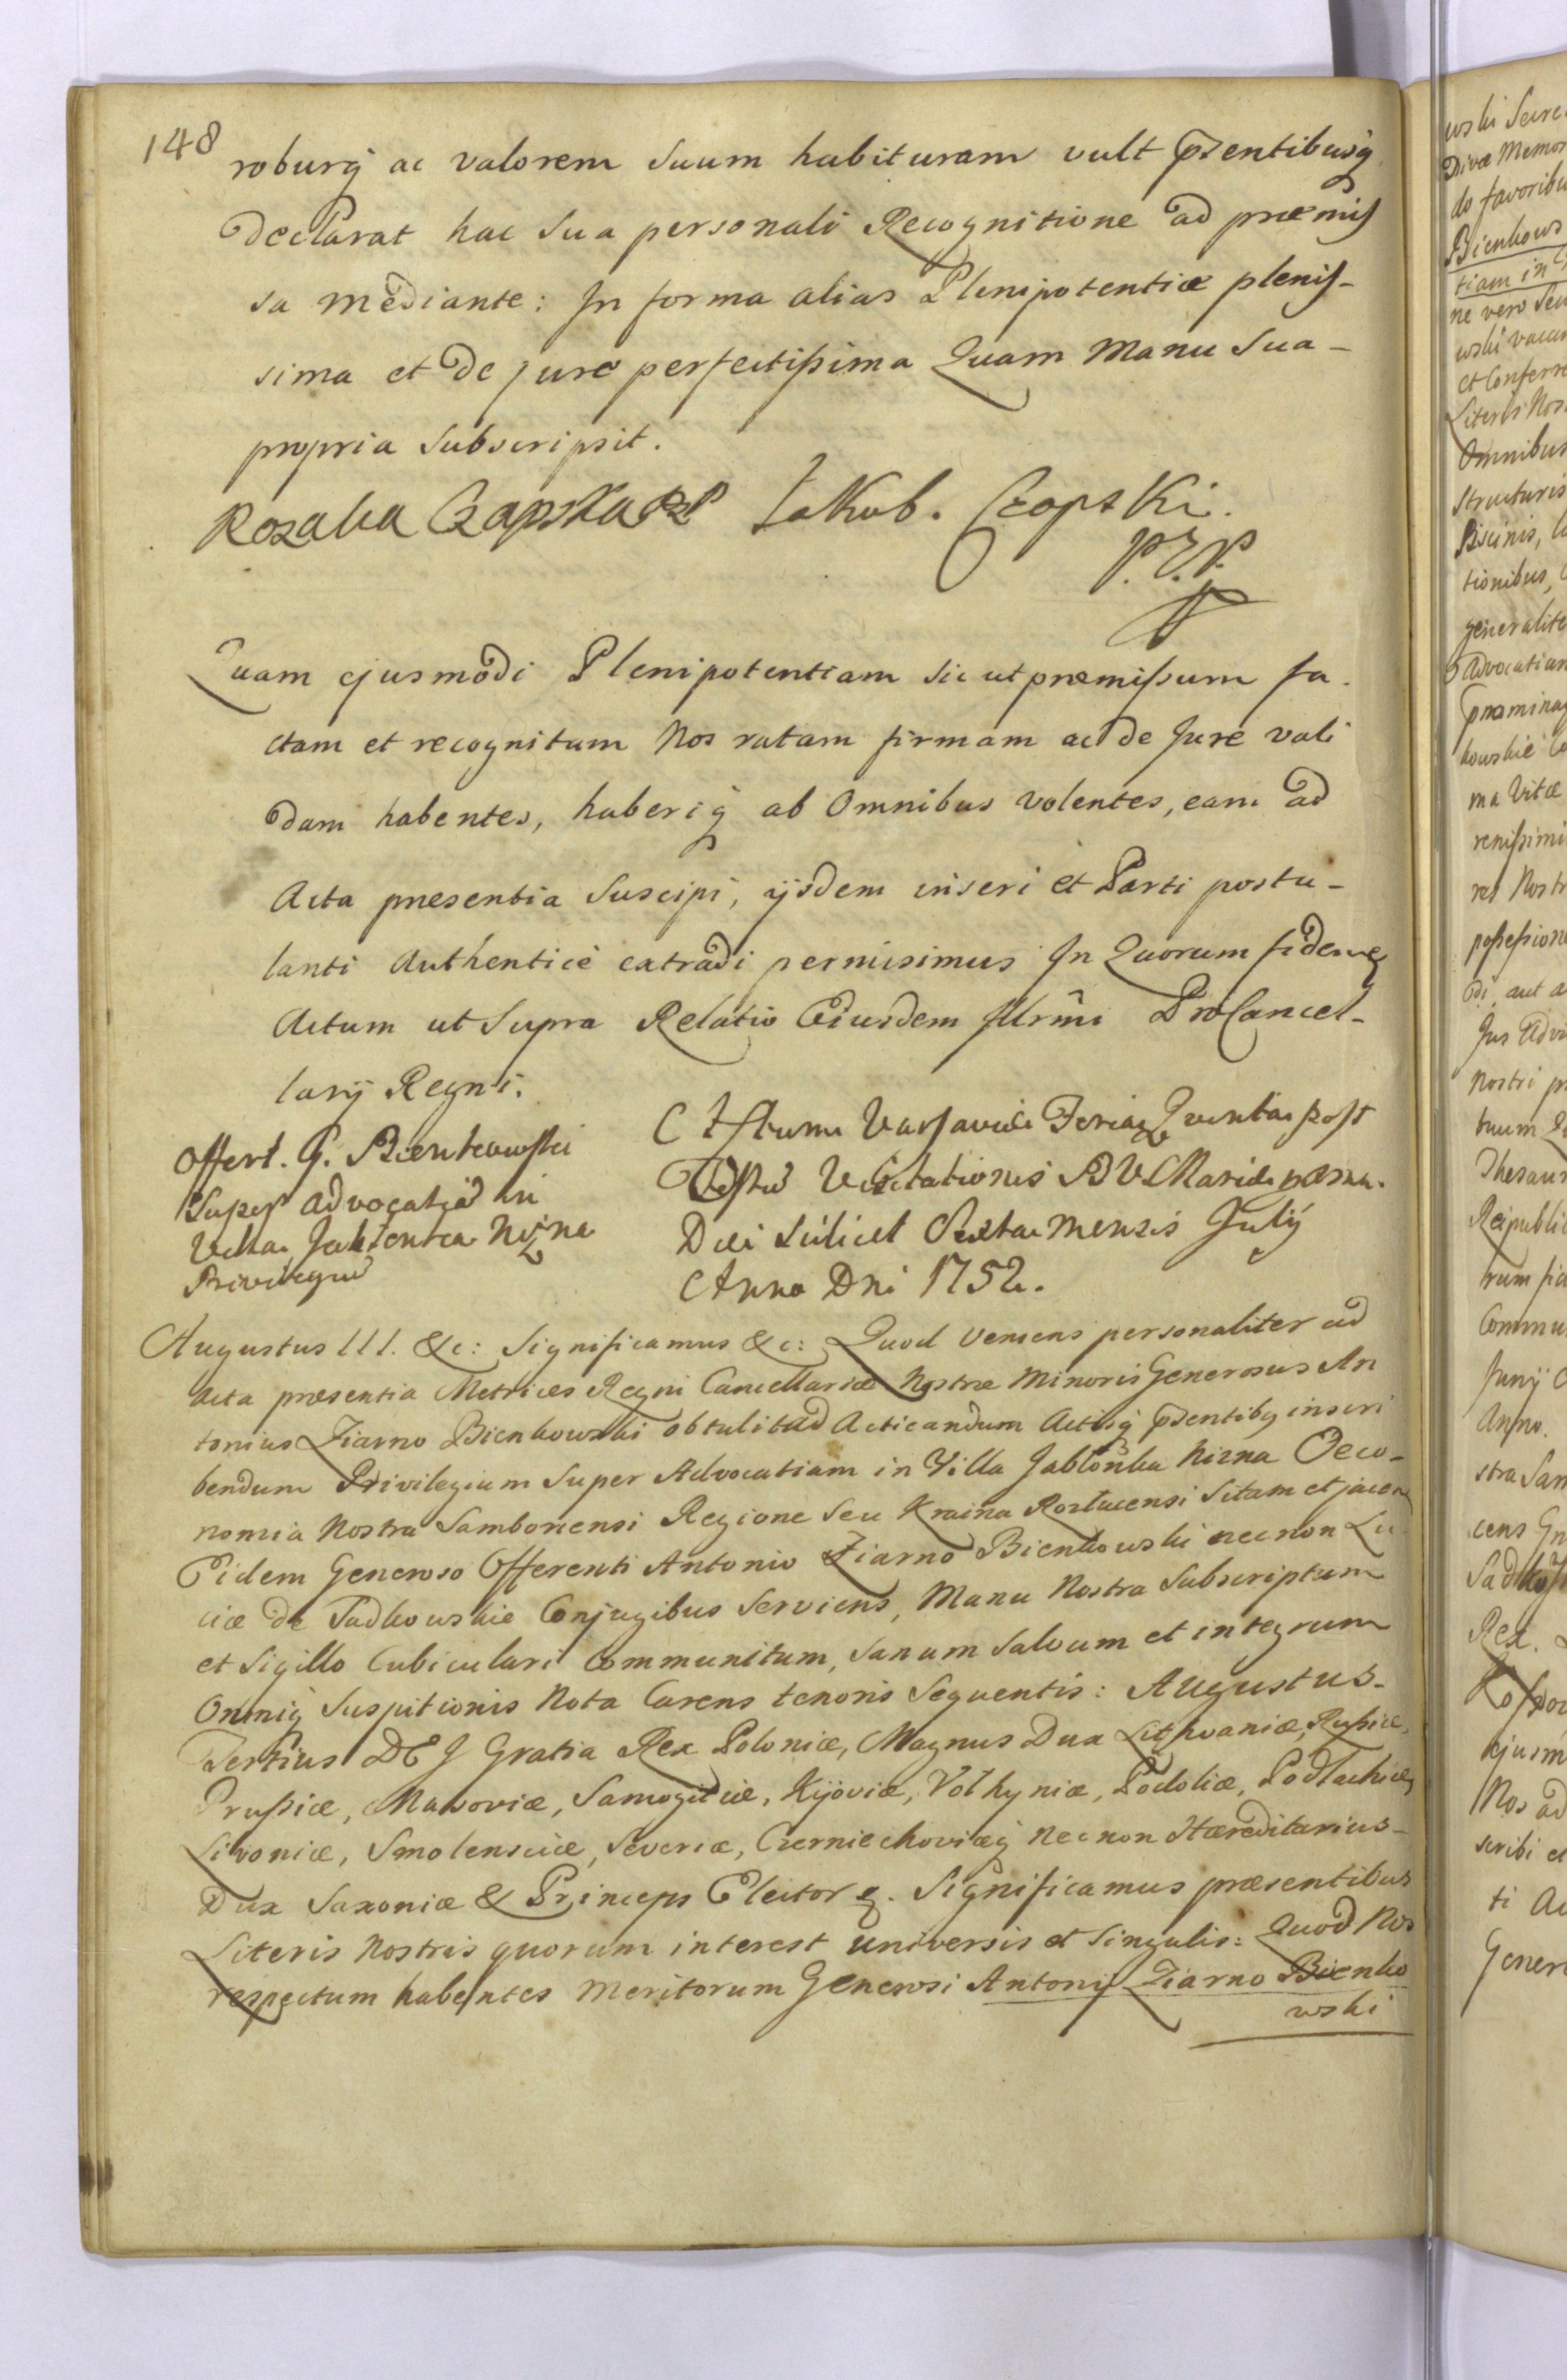 148
roburq̃ ac valorem Suum habituram vult p̃sentibusq̃
declarat hac Sua personali Recognitione ad præmiſ
sa mediante: In forma alias Plenipotentiæ pleniſ-
sima et de jure perfectiſsima Quam Manu Sua-
propria Subscripsit.
Rozalia Czapska
Jakub. Czapski.
Quam ejusmodi Plenipotentiam Sic ut præmiſsum fa.
ctam et recognitum Nos ratam firmam ac de Jure vali
dam habentes, haberiq̃ ab Omnibus volentes, eam ad
Acta præsentia Suscipi, ijsdem inseri et Parti postu-
lanti Authenticè extradi permisimus In Quorum fidem
Actum ut Supra Relatio Ejusdem Illrm̃i ProCancel-
larij Regni.
Offert. G. Bienkowski
Super advocatiã in
Villa Jablonka Niz̃na
Privilegiũ
Actum Varsaviæ Feria Quinta post
Festũ Visitationis B V Mariæ
Die Scilicet Sexta Mensis Julÿ
Anno Dni 1752.
Augustus III. &c: Significamus &c: Quod veniens personaliter ad
Acta præsentia Metrices Regni Cancellariæ Nostræ Minoris Generosus An
tonius Ziarno Bienkowski obtulit ad Acticandum Actisq̃ p̃sentiby inscri
bendum Privilegium Super Advocatiam in Villa Jabłonka Nizna Oeco-
nomia Nostra Samboriensi Regione Seu Kraina Rozlucensi Sitam et jacen
Eidem Generoso Offerenti Antonio Ziarno Bienkowski necnon Lu
ciæ de Sadkowskie Conjugibus Serviens, Manu Nostra Subscriptum
et Sigillo Cubiculari Communitum, Sanum Salvum et integrum
Omniq̃ Suspitionis Nota Carens tenoris Sequentis: Augustus-
Tertius DEI Gratia Rex Poloniæ, Magnus Dux Lithvaniæ, Ruſsiæ,
Pruſsiæ, Masoviæ, Samogitiæ, Kijoviæ, Volhyniæ, Podoliæ, Podlachiæ,
Livoniæ, Smolensciæ, Severiæ, Czerniechoviæq̃ Necnon Hæreditarius-
Dux Saxoniæ & Princeps Elector &. Significamus præsentibus
Literis Nostris quorum interest universis et Singulis: Quod Nos
respectum habentes Meritorum Generosi Antonij Ziarno Bienko
wski